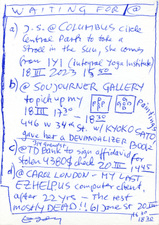 WAITING FOR @
a) J.S. @ COLUMBUS circle
Central Park to take a
stroll in the sun, She comes
from IYI (Integral Yoga Institute)
18 III 2023 15 50
b) @ SOUJOURNER GALLERY
to pick up my
18 III 17 30
446 W 34th St. w/ KYOKO SATO
gave her a DEVANDALIZER Book
c) @ TD Bank to sign affidavit for
stolen 4380$ check 20 III 14 45
d) @ CAROL LONDON - MY LAST
EZHELPUS computer client.
after 22 yrs - The rest
mostly DEAD!! 61 Jane St 20 III